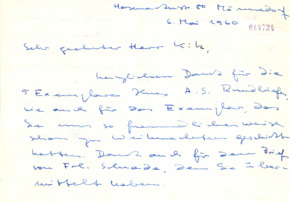 6. Mai 1960
Sehr geehrter Herr Kik,
herzlichen Dank für die
5 Exemplare Ihres A.S. Rundbriefes,
wie auch für das Exemplar, das
Sie uns so freundlicherweise
schon zu Weihnachten geschickt
hatten. Dank auch für den Brief
von Frl. den Sie über-
mittelt haben.